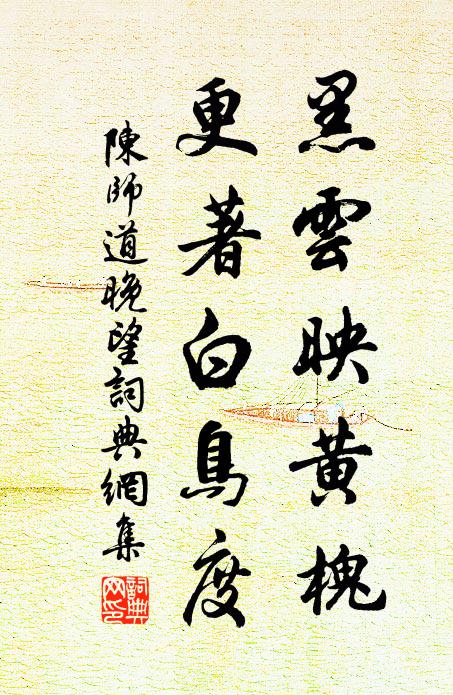 黑雲映黄槐
更著白鳥度
陳師道晚望詞典網集
詞典網印